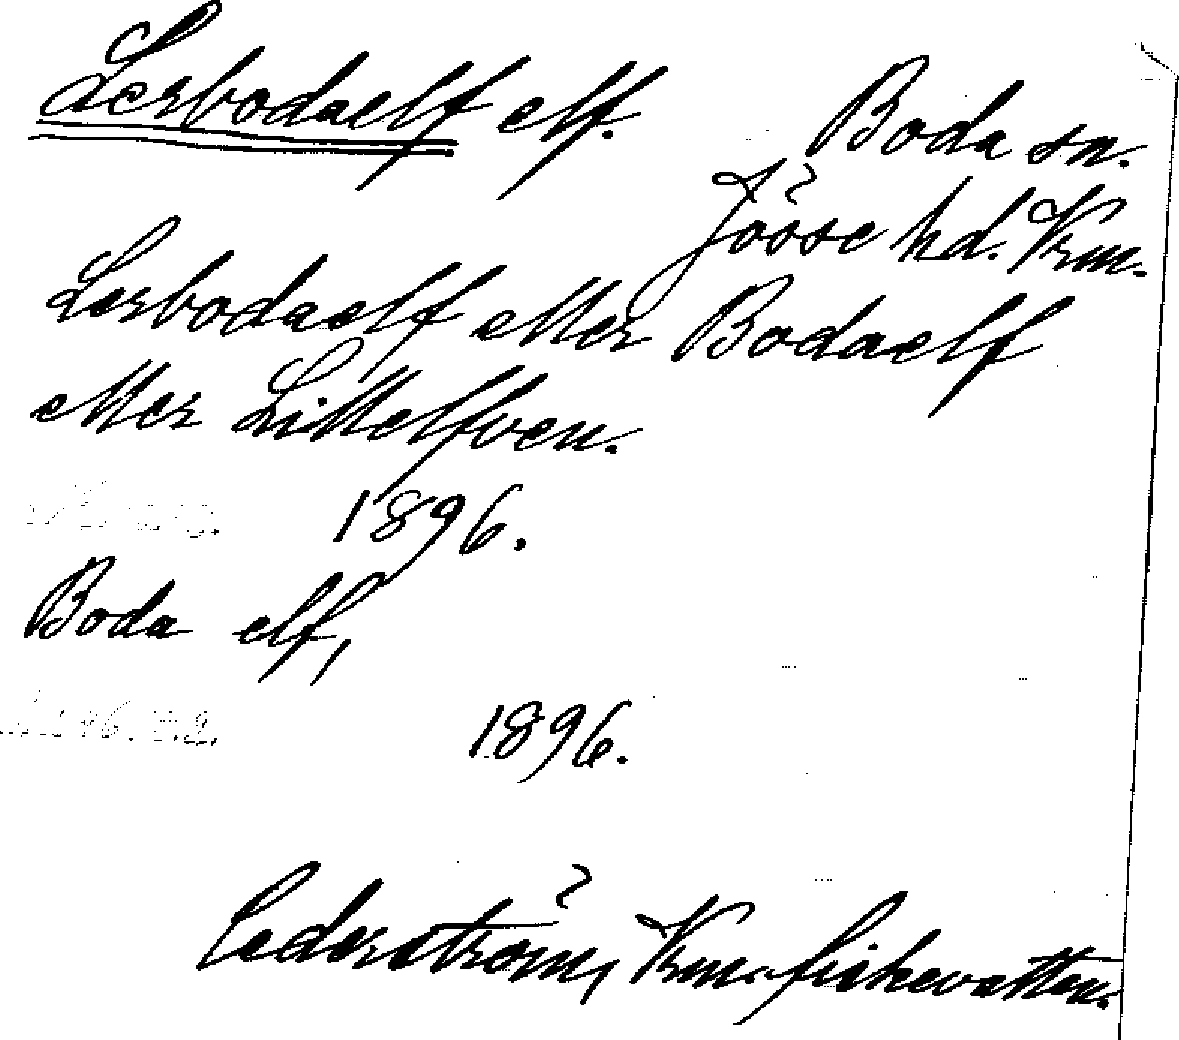 Lerbodaelf elf.
Boda sn.
Jösse hd. Vrm.
Lerbodaelf eller Bodaelf
eller Lillelfven.
1896.
Boda elf,
1896.
Cederström, Vrm. fiskevatten.